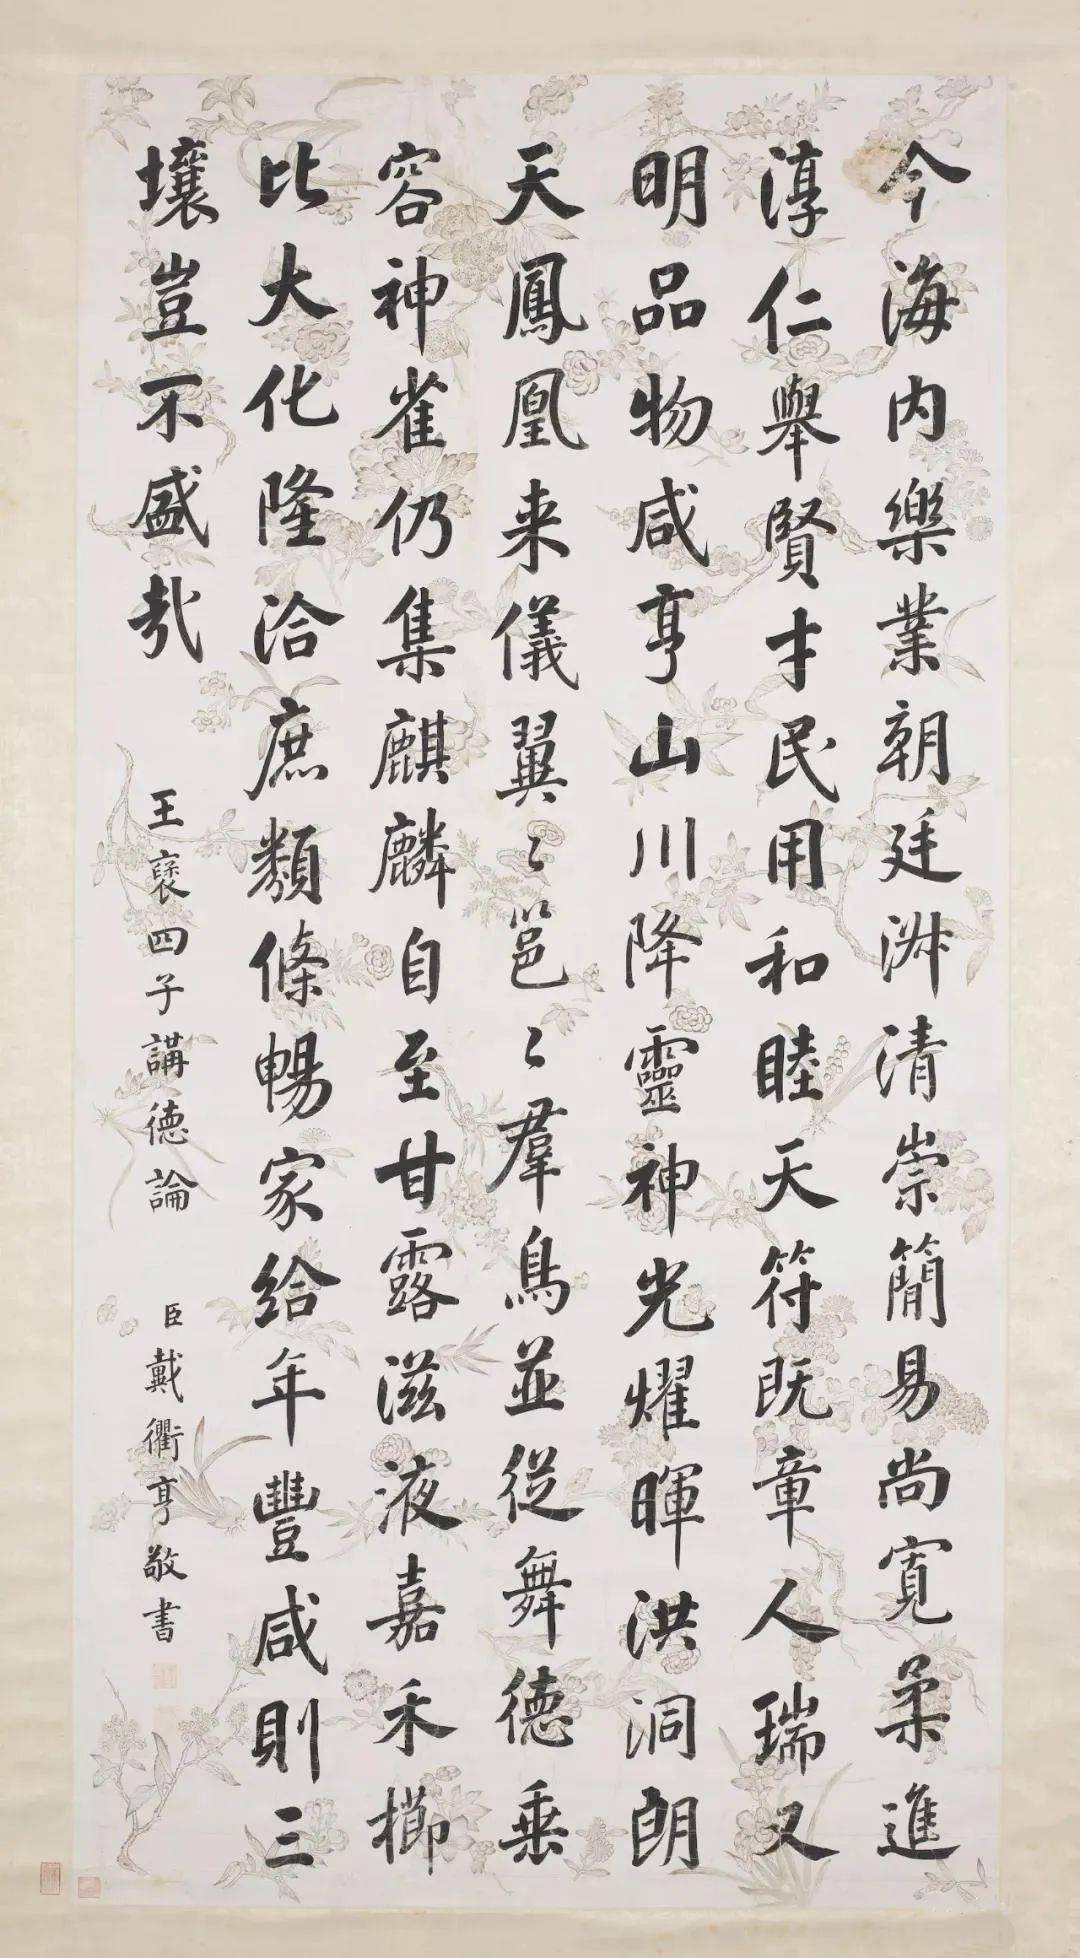 今海内樂業朝廷淋清崇簡易尚寬柔進
淳仁舉賢才民用和睦天符既章人瑞又
明品物咸亨山川降靈神光燿暉洪洞朗
天鳳凰来儀翼〻邕〻羣鳥並從舞德垂
容神雀仍集麒麟自至甘露滋液嘉禾櫛
比大化隆洽庶類條暢家給年豐咸則三
壤豈不盛哉
王襃四子講德論
臣戴衢亨敬書